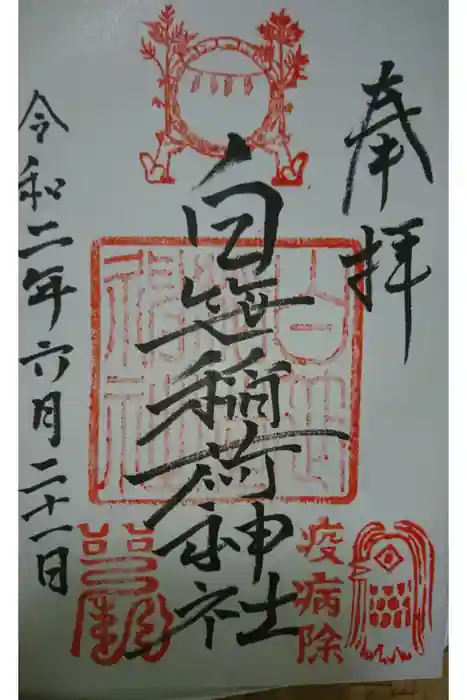 奉拝
白笹稲荷神社
疫病除
令和二年六月二十一日